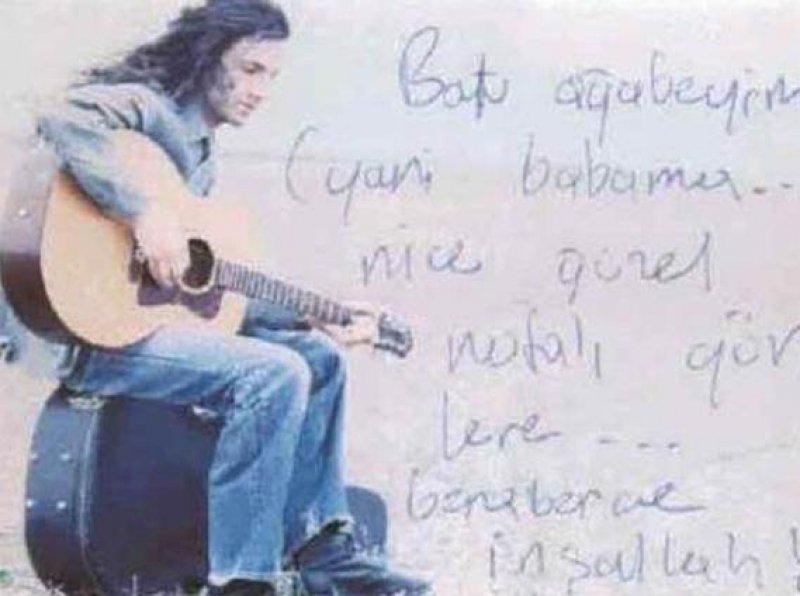 Batu ağabeyim
(yani babama...
nice güzel
notalı gün
lere ....
beraberce
inşallah!